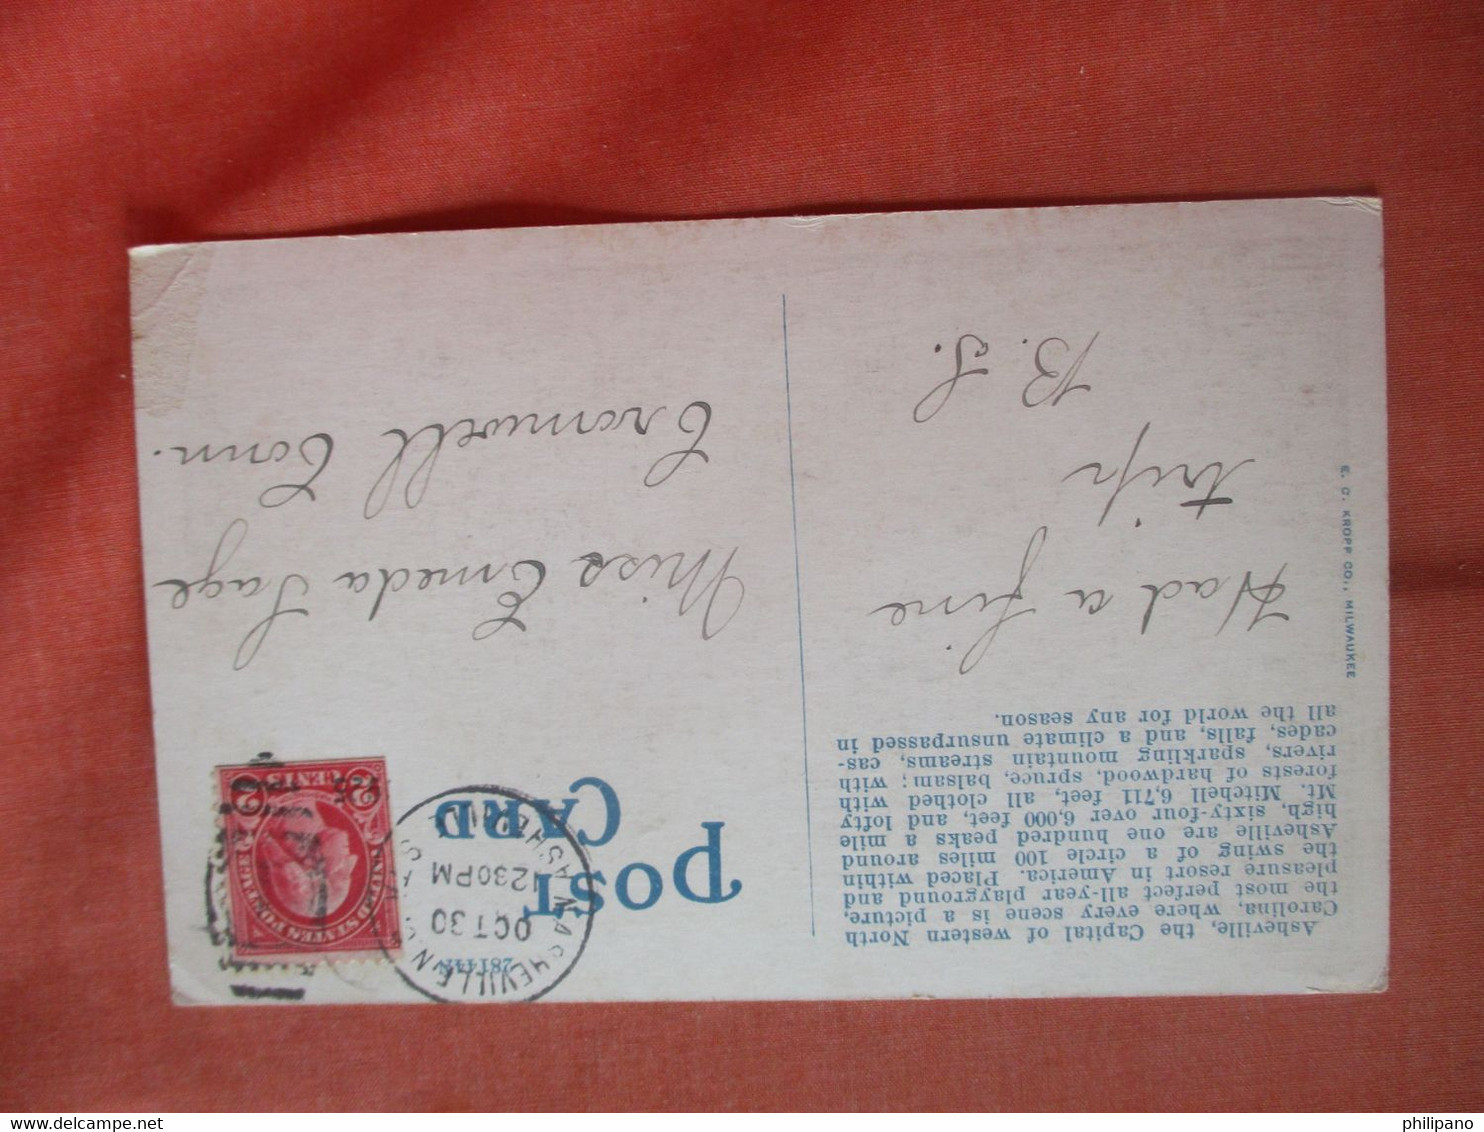 Asheville, the Capital of western North
Carolina, where every scene is a picture,
the most perfect all-year playground and
pleasure resort in America. Placed within
the swing of a circle 100 miles around
Asheville are one hundred peaks a mile
high, sixty-four over 6,000 feet, and lofty
Mt. Mitchell 6,711 feet, all clothed with
forests of hardwood, spruce, balsam; with
rivers, sparkling mountain streams, cas-
cades, falls, and a climate unsurpassed in
all the world for any season.
Had a fine
trip
B. S.
E. C. KROPP CO., MILWAUKEE
28144N
POST
CARD
ASHEVILLE N
OCT 30
1230 PM
STATES POSTAGE
2 CENTS 2
Miss Emeda Sage
Cromwell Conn.
philipano